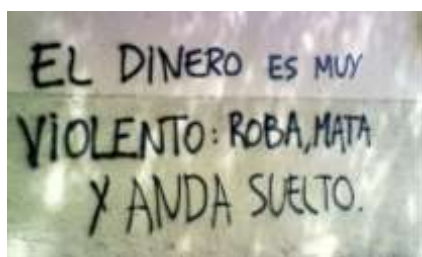 EL DINERO ES MUY
VIOLENTO: ROBA, MATA
Y ANDA SUELTO.